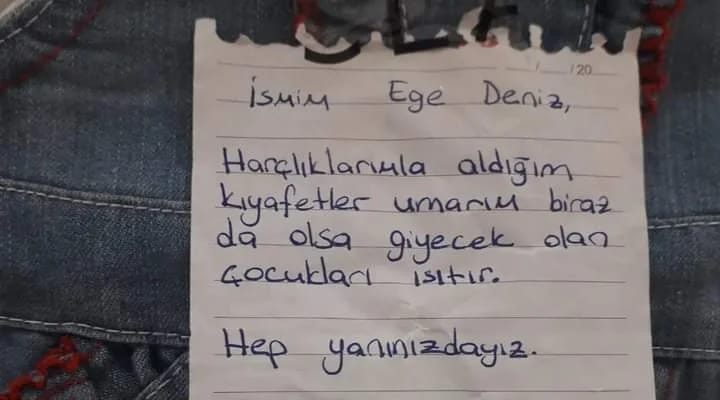 / /20
İsmim Ege Deniz,
Harçlıklarımla aldığım
kıyafetler umarım biraz
da olsa giyecek olan
çocukları ısıtır.
Hep yanınızdayız.